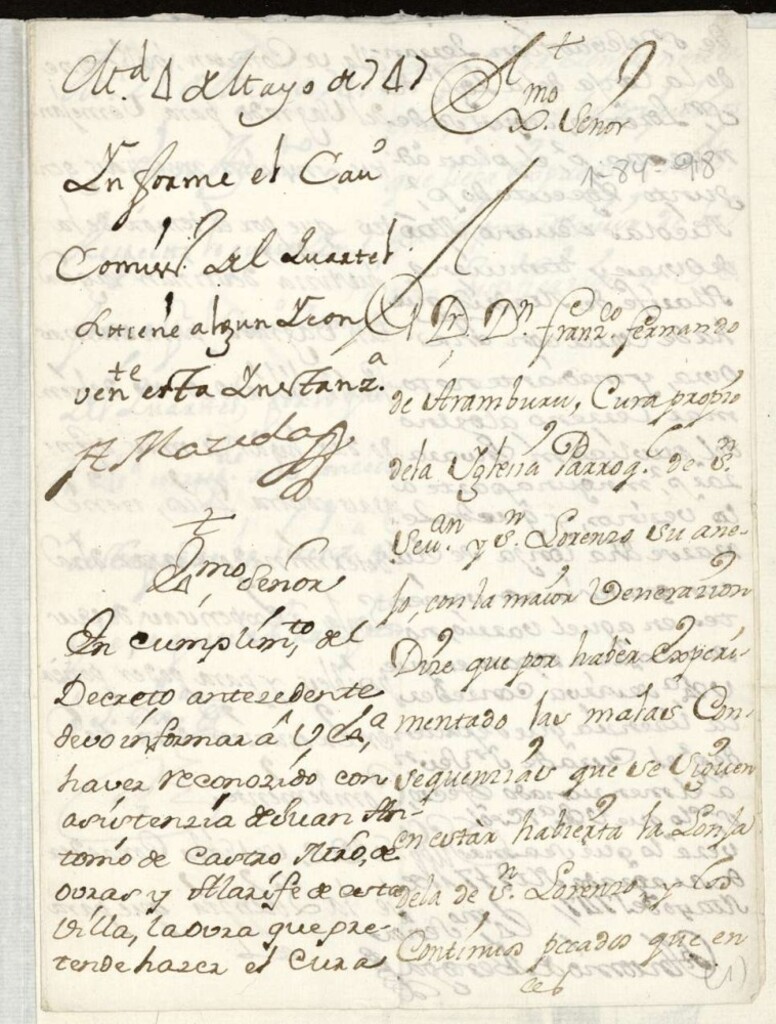 Md. 4 de Mayo de 747
Informe el Cavo.
Comiss. del Quartel
si tiene algun Incon
vente. esta Instanza.
+
Exmo. Señor
En cumplimto. del
Decreto antezedente
devo informar â V. Exa.
haver reconozido con
asistenzia de Juan An-
tonio de Castro Mro. de
obras y Alarife de esta
Villa, la obra que pre-
tende hazer el Cura
+
Exmo. Señor
1-84-98
El Dr. Dn. Franzco. Fernando
de Aramburu, Cura proprio
dela Yglesia Parroql. de Sn.
Sevan. y Sn. Lorenzo su ane-
jo, con la maior Venerazion
Dize que por habèr Experi-
mentado las malas Con-
sequenzias que se siguen
en estàr habierta la Lonja
dela de Sn. Lorenzo, y los
Continuos pecados que en
(1)